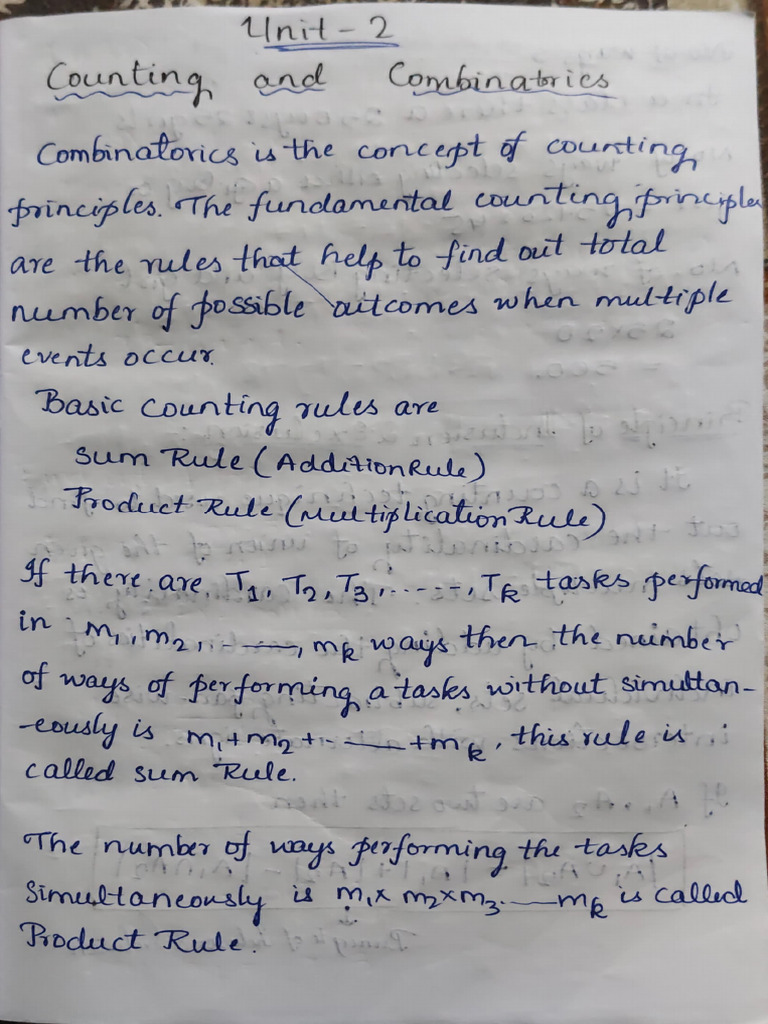 Unit - 2
Counting and Combinatorics
Combinatorics is the concept of counting
principles. The fundamental counting principles
are the rules that help to find out total
number of possible outcomes when multiple
events occur.
Basic counting rules are
Sum Rule (Addition Rule)
Product Rule (Multiplication Rule)
If there are T1, T2, T3, ------, Tk tasks performed
in m1, m2, ------, mk ways then the number
of ways of performing a tasks without simultan-
-eously is m1+m2+------+mk, this rule is
called sum Rule.
The number of ways performing the tasks
simultaneously is m1x m2xm3.------mk is called
Product Rule.